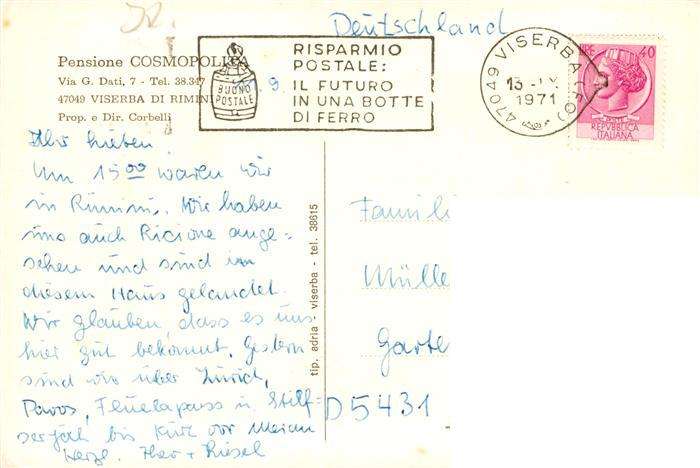 Deutschland
Pensione COSMOPOLITA
Via G. Dati, 7 - Tel. 38.347
47049 VISERBA DI RIMINI
Prop. e Dir. Corbelli
BUONO
POSTALE
RISPARMIO
POSTALE:
IL FUTURO
IN UNA BOTTE
DI FERRO
47049 VISERBA (FO)
13.IV.
1971
LIRE 40
POSTE
REPVBBLICA
ITALIANA
Ihr Lieben!
Um 15 00 waren wir
in Rimini. Wir haben
uns auch Ricione ange=
sehen und sind in
diesem Haus gelandet.
Wir glauben, dass es uns
hier gut bekommt. Gestern
sind wir über Zürich,
Davos, Flüelapass u. Stilf=
serjoch bis kurz vor Meran
Herzl.
tip. adria - viserba - tel. 38615
Famili
Mülle
Garte
D 5431